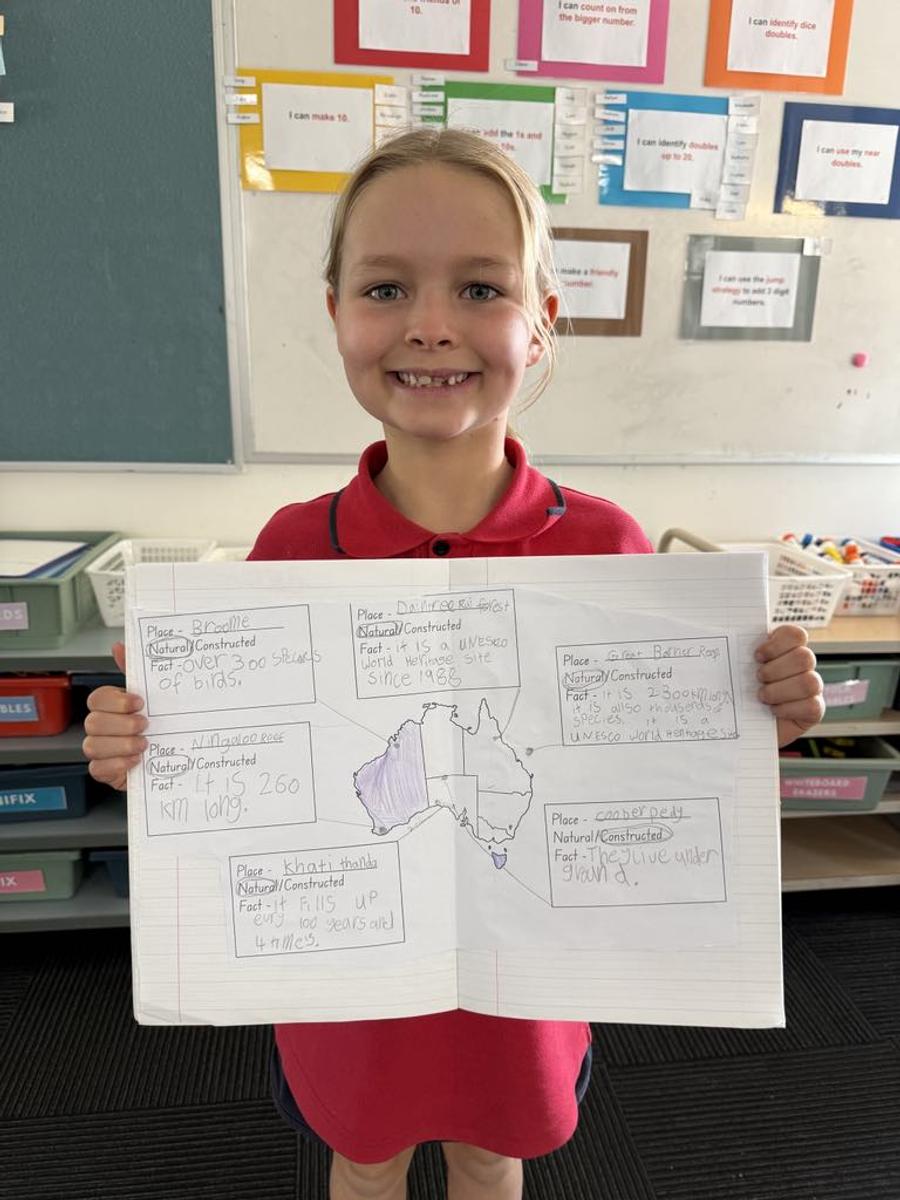 10.
I can count on from
the bigger number.
I can identify dice
doubles.
I can make 10.
add the 1s and
10s.
I can identify doubles
up to 20.
I can use my near
doubles.
make a friendly
number.
I can use the jump
strategy to add 2 digit
numbers.
Place - Broome
Natural/Constructed
Fact - over 300 species
of birds.
Place - Daintree Rain forest
Natural/Constructed
Fact - it is a UNESCO
World Heritage site
since 1988
Place - Great Barrier Reef
Natural/Constructed
Fact - it is 2300km long
it is allso thousands of
species. it is a
UNESCO World Heritage site
Place - Ningaloo Reef
Natural/Constructed
Fact - it is 260
km long.
Place - cooberpedy
Natural/Constructed
Fact - They live under
ground.
Place - Khati thanda
Natural/Constructed
Fact - it Fills up
evry 100 years and
4 times.
WHITEBOARD
ERASERS